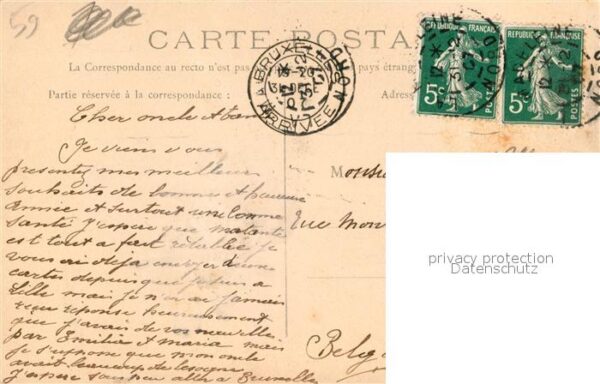 59
CARTE POSTA
La Correspondance au recto n'est pas pays étrang
Partie réservée à la correspondance : Adres
BRUXELLES
ARRIVEE
REPUBLIQUE FRANÇAISE
5c POSTES
REPUBLIQUE FRANÇAISE
5c POSTES
Cher oncle et tan
Je viens vous
presentez mes meilleurs
souhaits de bonne et heureuse
Année et surtout une bonne
santé j'espere que matante
est tout a fait rétablie je
vous ai deja envoyer deux
cartes depuis que je suis a
Lille mais je n'en ai jamais
reçu réponse heureusement
que j'avais de vos nouvelle
par Emilia et maria mais
je suppose que mon oncle
avait beaucoup de besogne
J'espère sous peu aller a Bruxelles
Monsieu
Rue Mon
Belg
privacy protection
Datenschutz